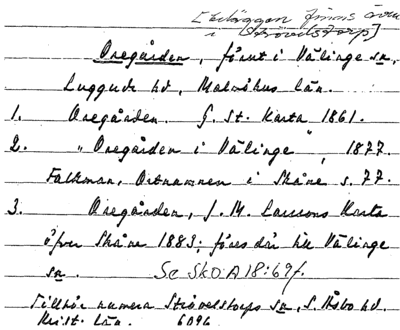 [Beläggen finns även
i Strövelstorp]
Oregården, förut i Välinge sn,
Luggude hd, Malmöhus län.
1. Oregården. G. St. Karta 1861.
2. "Oregården i Välinge", 1877.
Falkman, Ortnamnen i Skåne s. 77.
3. Oregården, J. M. Larssons Karta
öfver Skåne 1883; föres där till Välinge
sn. Se SkO:A18:69f.
Tillhör numera Strövelstorps sn, S. Åsbo hd.
Krist. län. 6096